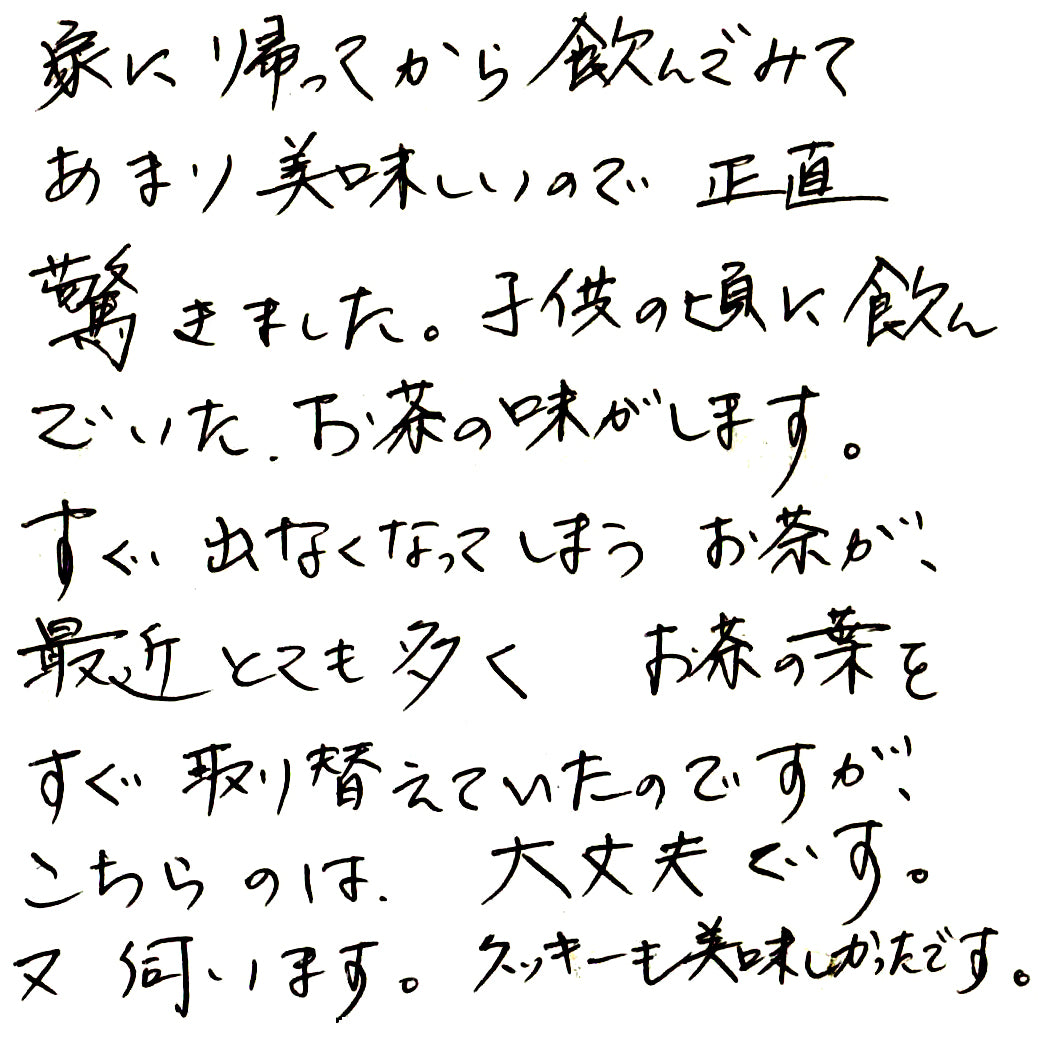 家に帰ってから飲んでみて
あまり美味しいので 正直
驚きました。子供の頃に飲ん
でいた、お茶の味がします。
すぐ出なくなってしまう お茶が、
最近とても多く お茶の葉を
すぐ取り替えていたのですが、
こちらのは、大丈夫です。
又 伺います。クッキーも美味しかったです。